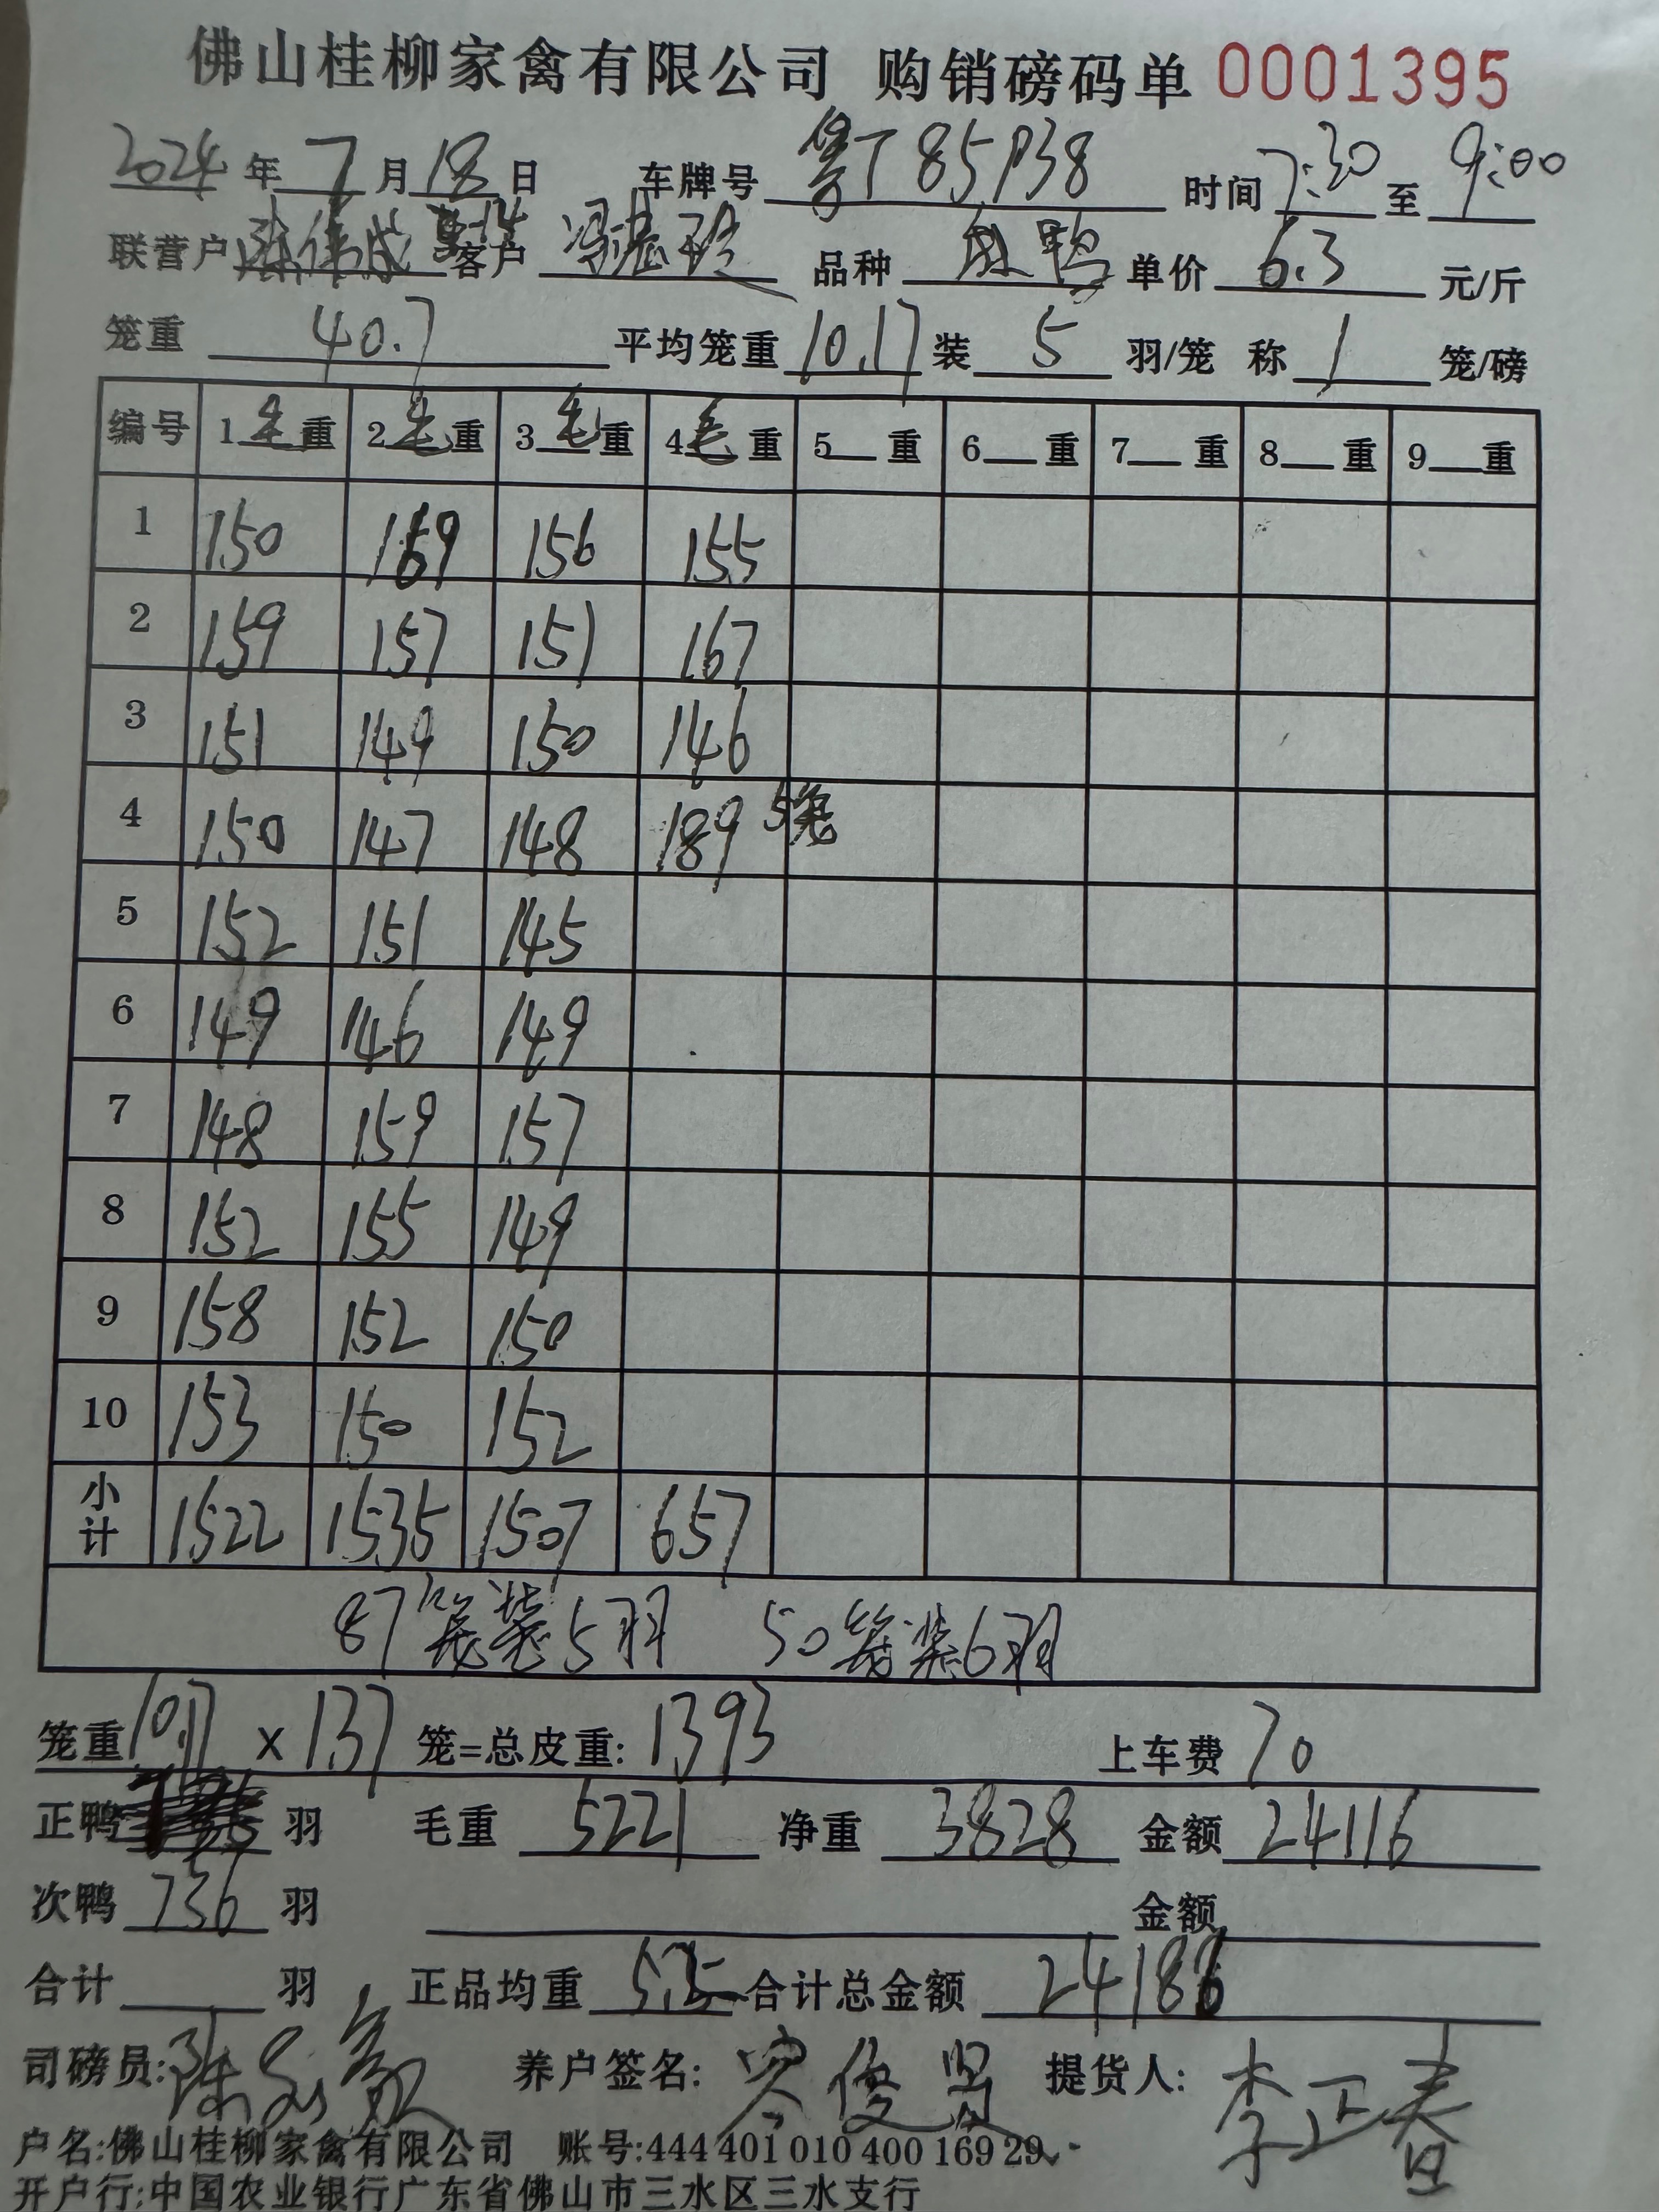 佛山桂柳家禽有限公司 购销磅码单 0001395
2024 年 7 月 18 日 车牌号 粤T85P38 时间 7:30 至 9:00
联营户 客户 品种 麻鸭 单价 6.3 元/斤
笼重 40.7 平均笼重 10.17 装 5 羽/笼 称 1 笼/磅
编号 1 毛 重 2 毛 重 3 毛 重 4 毛 重 5 重 6 重 7 重 8 重 9 重
1 150 169 156 155
2 159 157 151 167
3 151 149 150 146
4 150 147 148 189 5笼
5 152 151 145
6 149 146 149
7 148 159 157
8 152 155 149
9 158 152 150
10 153 150 152
小计 1522 1535 1507 657
87笼装5羽 50笼装6羽
笼重 10.17 X 137 笼=总皮重: 1393 上车费 70
正鸭 羽 毛重 5221 净重 3828 金额 24116
次鸭 736 羽 金额
合计 羽 正品均重 5.2 合计总金额 24186
司磅员: 养户签名: 俊贤 提货人: 李正春
户名:佛山桂柳家禽有限公司 账号:444 401 010 400 169 29
开户行:中国农业银行广东省佛山市三水区三水支行